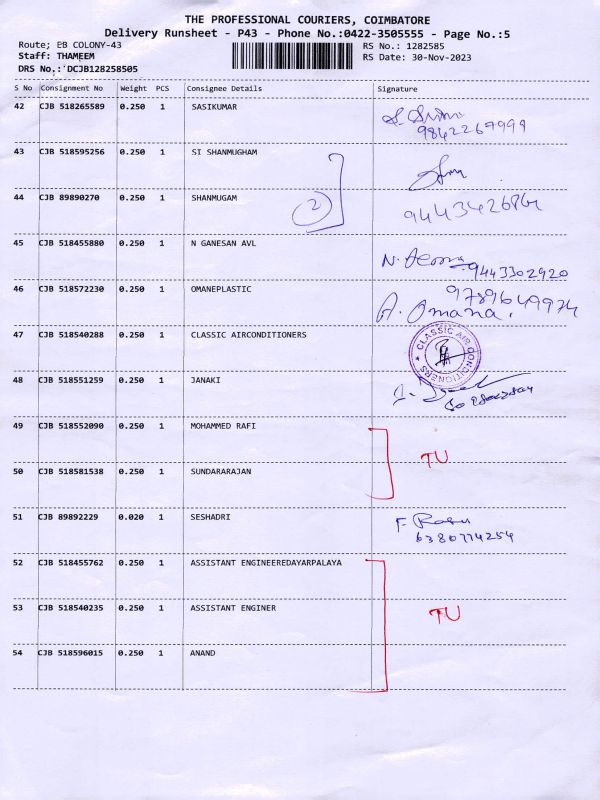 THE PROFESSIONAL COURIERS, COIMBATORE
Delivery Runsheet - P43 - Phone No.:0422-3505555 - Page No.:5
Route; EB COLONY-43 RS No.: 1282585
Staff: THAMEEM RS Date: 30-Nov-2023
DRS No.: DCJB128258505
S No Consignment No Weight PCS Consignee Details Signature
42 CJB 518265589 0.250 1 SASIKUMAR
9842267999
43 CJB 518595256 0.250 1 SI SHANMUGHAM
44 CJB 89890270 0.250 1 SHANMUGAM 2
45 CJB 518455880 0.250 1 N GANESAN AVL N.
9443302920
46 CJB 518572230 0.250 1 OMANEPLASTIC 9789649974
A. Omana.
47 CJB 518540288 0.250 1 CLASSIC AIRCONDITIONERS CLASSIC AIR CONDITIONERS
48 CJB 518551259 0.250 1 JANAKI
49 CJB 518552090 0.250 1 MOHAMMED RAFI
TU
50 CJB 518581538 0.250 1 SUNDARARAJAN
51 CJB 89892229 0.020 1 SESHADRI
6380774254
52 CJB 518455762 0.250 1 ASSISTANT ENGINEEREDAYARPALAYA
53 CJB 518540235 0.250 1 ASSISTANT ENGINER TU
54 CJB 518596015 0.250 1 ANAND